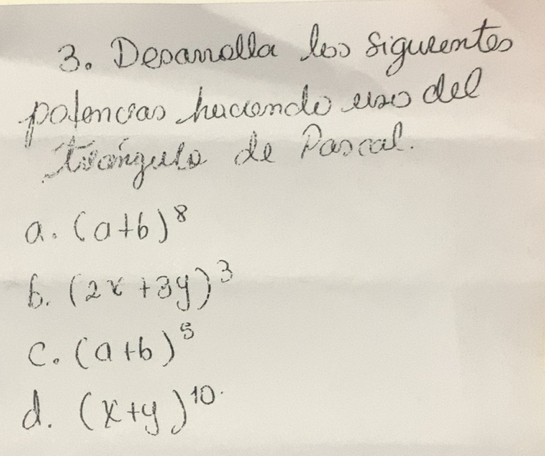 3. Desarrolla los siguientes
potencias haciendo uso del
triángulo de Pascal.
a. (a+b)⁸
b. (2x+3y)³
c. (a+b)⁵
d. (x+y)¹⁰.